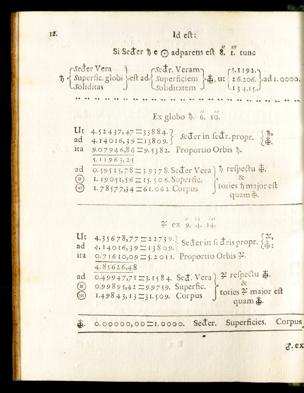 12. Id est:
Si Secter ♄ e ☉ adparens est 8. 1. tunc
Secter Vera Sectr. Veram 5.1192.
♄. Superfic. globi est ad Superficiem ut 26.206. ad 1.0000.
Soliditas Soliditatem 134.15.
Ex globo ♄. 6. 10.
Ut 4.52437,47=33884.
ad 4.14016,39=13809. Secter in sectr. propr.
ita 9.07946,86=9.5382. Proportio Orbis ♄.
5.11963,25
ad 0.59525,78=3.9378. Secter Vera ♄ respectu
1.19051,56=15.506. Superfic. &
1.78577,34=61.062. Corpus toties ♄ major est quam
♃ ex 9. 4. 14.
Ut 4.35678,77=22739.
ad 4.14016,39=13809. Secter in sectris propr.
ita 0.71610,09=5.2011. Proportio Orbis ♃.
4.85626,48
ad 0.49947,71=3.1584. Sect. Vera ♃ respectu
0.99895,42=9.9759. Superfic. &
1.49843,13=31.509. Corpus toties ♃ major est quam
0.00000,00=1.0000. Secter. Superficies. Corpus
♂. ex